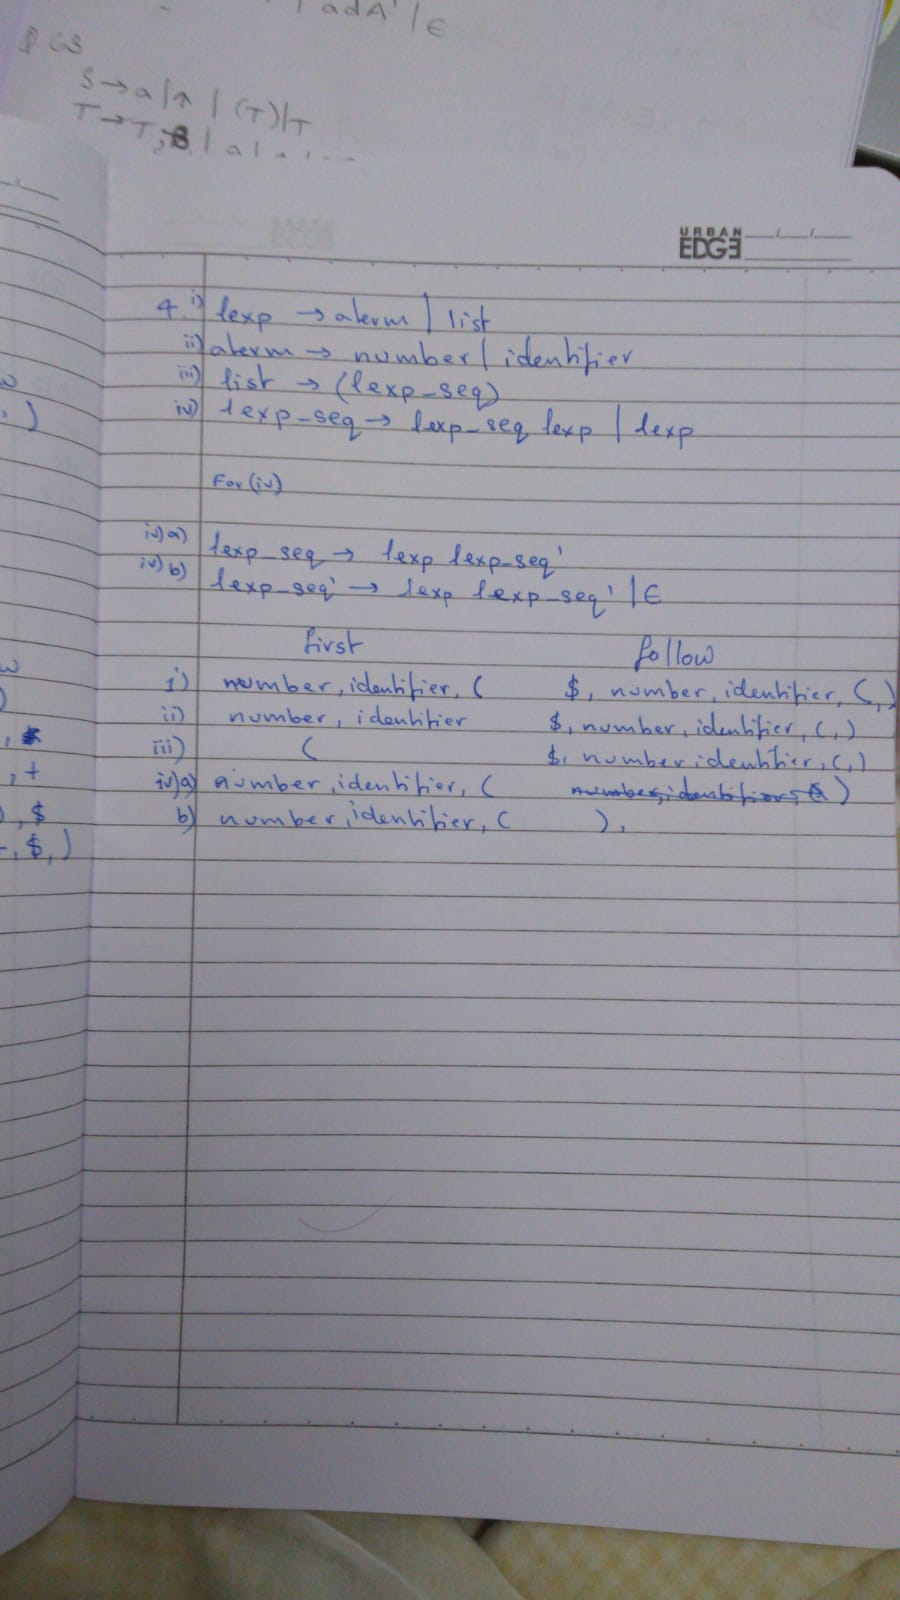 | adA' | ∈
GS
S → a | ↑ | (T) | T
T → T,
URBAN
EDGE
4. i) lexp → aterm | list
ii) aterm → number | identifier
iii) list → (lexp_seq)
iv) lexp_seq → lexp_seq lexp | lexp
For (iv)
iv) a) lexp_seq → lexp lexp_seq'
iv) b) lexp_seq' → lexp lexp_seq' | ∈
first follow
i) number, identifier, ( $, number, identifier, (, )
ii) number, identifier $, number, identifier, (, )
iii) ( $, number identifier, (, )
iv) a) number, identifier, ( )
b) number, identifier, ( ),
, +
), $
, $, )